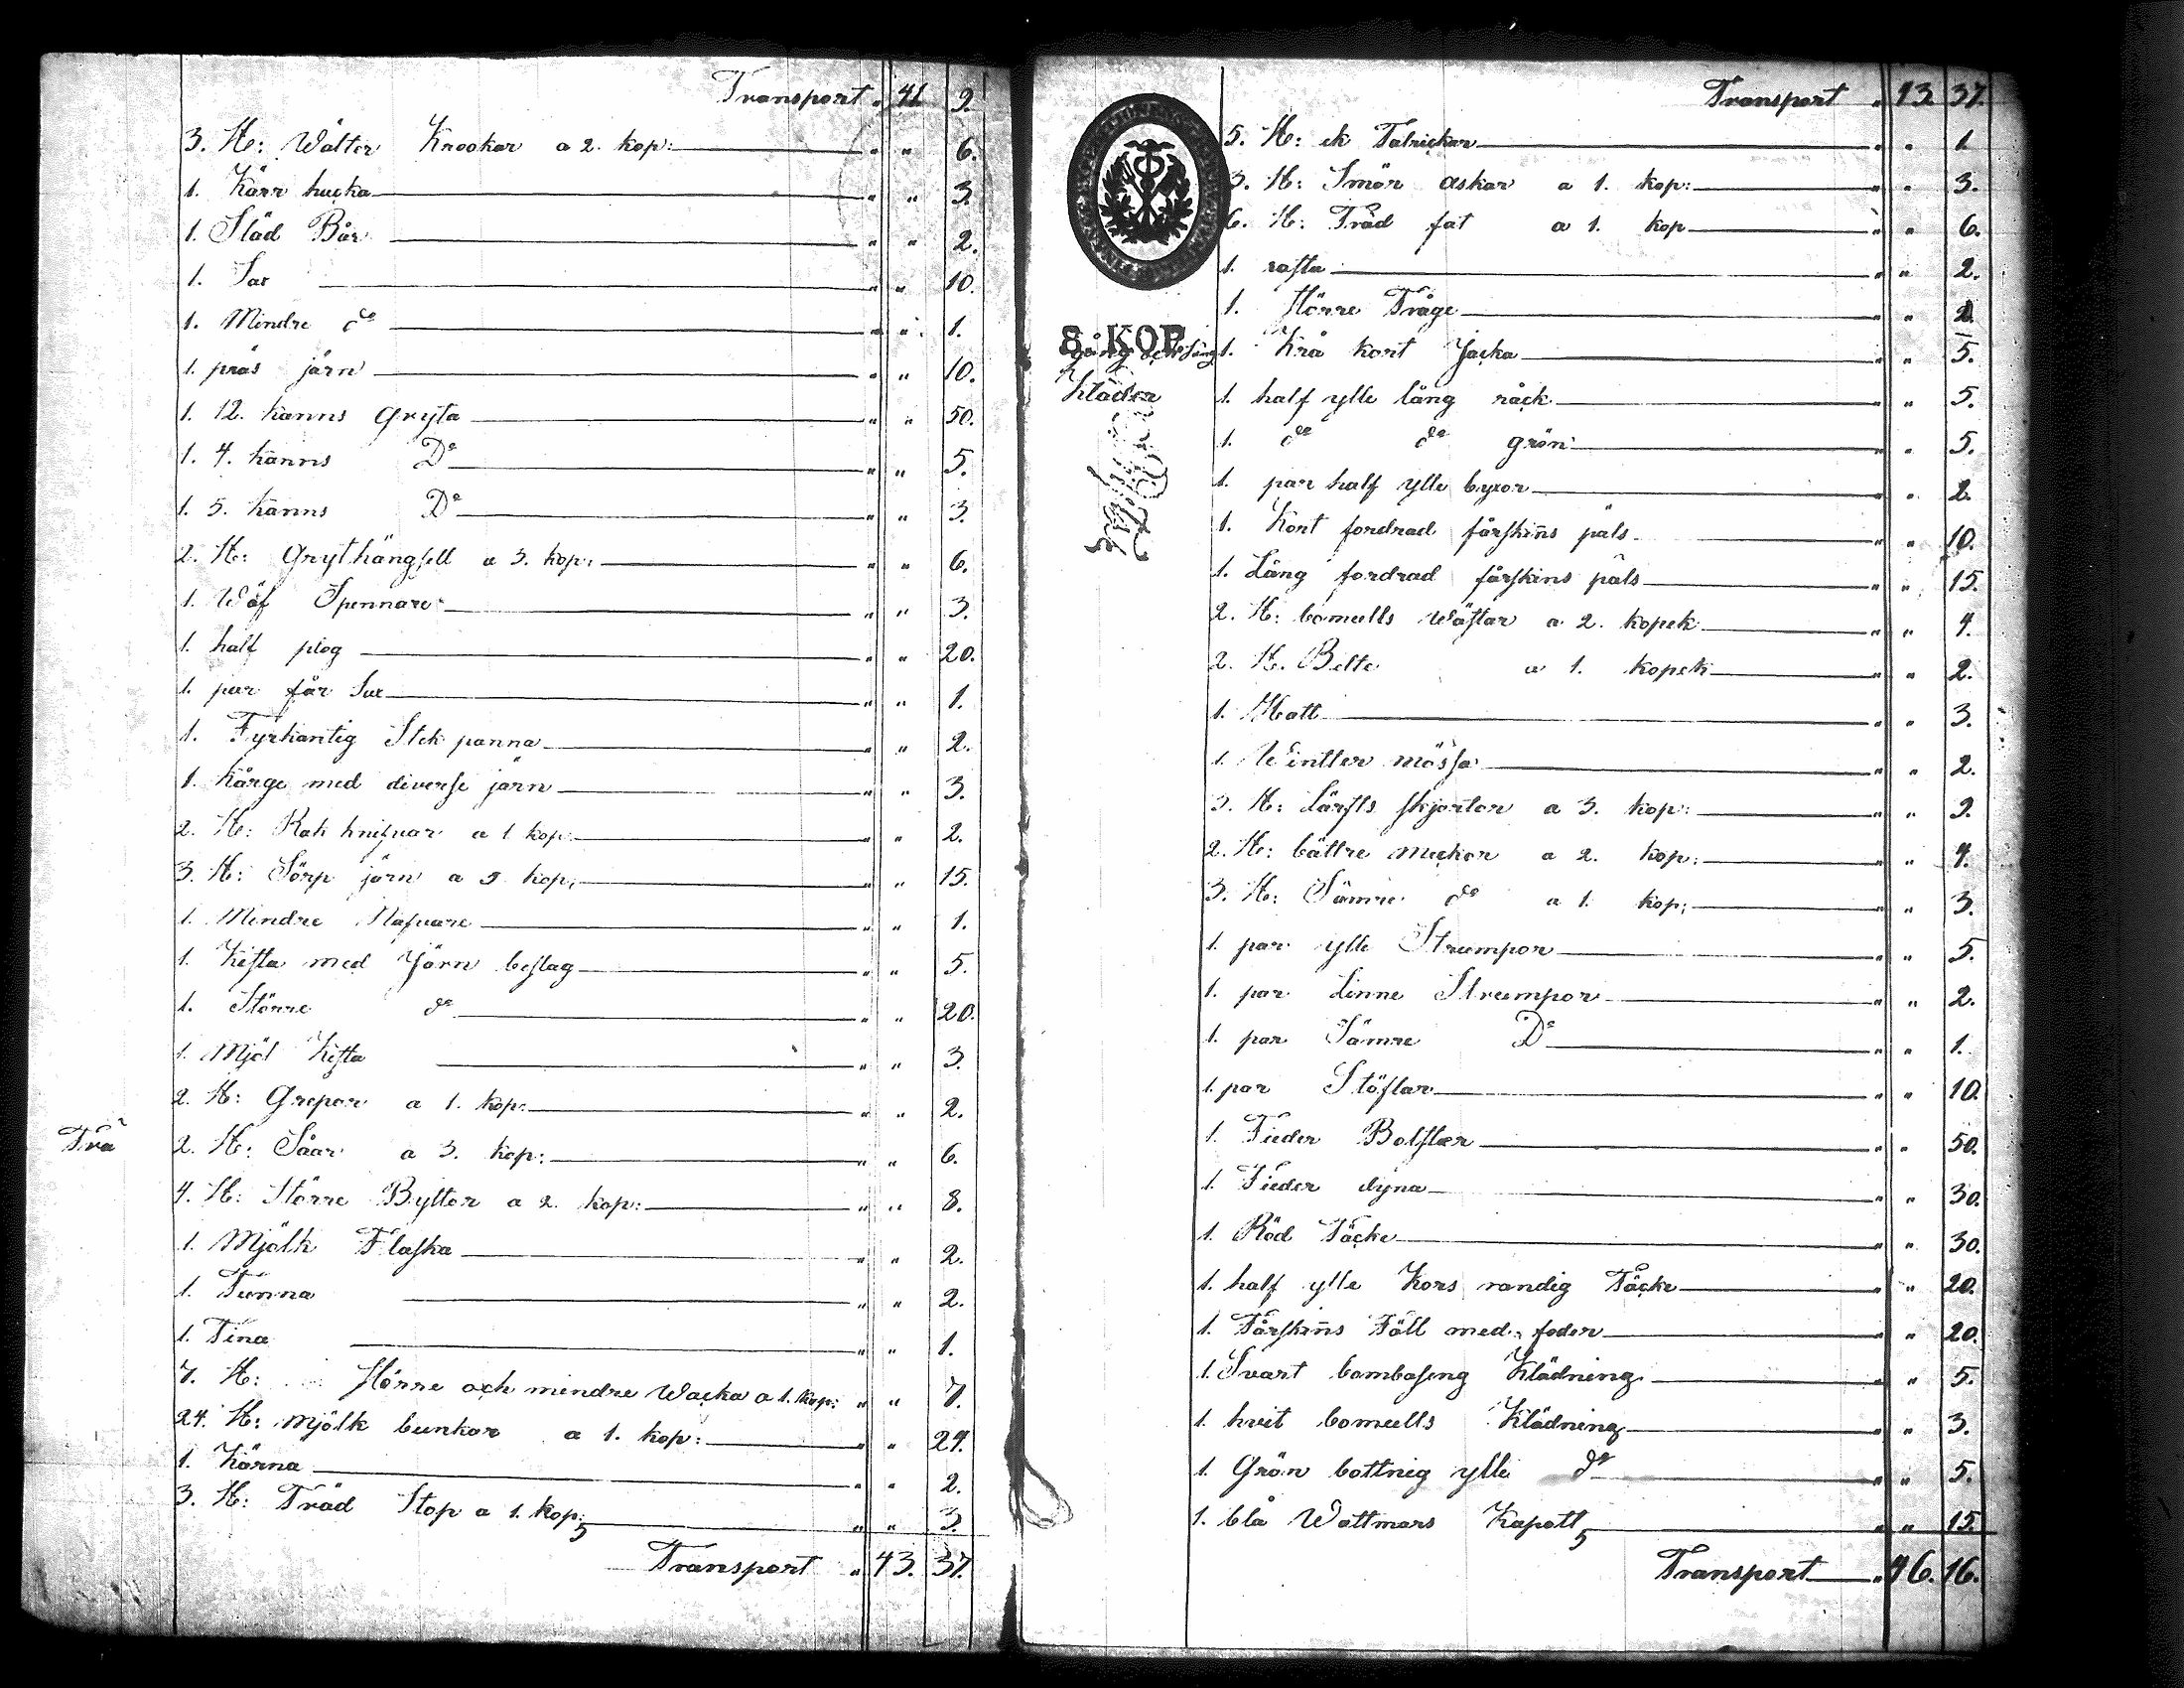 Transport " 41. 9.
3. St: Wälter Krookar a 2. kop: " " 6.
1. Kärr hucka " " 3.
1. Släd Bår " " 2.
1. Sax " " 10.
1. Mindre do " " 1.
1. präs järn " " 10.
1. 12. kanns Gryta " " 50.
1. 4. kanns Do " " 5.
1. 5. kanns Do " " 3.
2. St: Grythängsell a 3. kop: " " 6.
1. Wäf Spennare " " 3.
1. half plog " " 20.
1. par får Sax " " 1.
1. Fyrkantig Stek panna " " 2.
1. kårge med diverse järn " " 3.
2. St: Rak knifvar a 1 kop: " " 2.
3. St: Sörp järn a 5 kop: " " 15.
1. Mindre Nafvare " " 1.
1. Kista med Järn beslag " " 5.
1. Större do " " 20.
1. Mjöl Kista " " 3.
2. St: Grepar a 1. kop: " " 2.
Trä
2. St: Såar a 3. kop: " " 6.
4. St: Större Byttor a 2. kop: " " 8.
1. Mjölk Flaska " " 2.
1. Tunna " " 2.
1. Tina " " 1.
7. St: Större och mindre Wacka a 1. kop: " " 7.
24. St: Mjölk bunkar a 1. kop: " " 24.
1. Kärna " " 2.
3. St: Träd Stop a 1. kop: " " 3.
Transport " 43. 37.
Transport " 43. 37.
5. St: ek Talrickar " " 1.
3. St: Smör askar a 1. kop: " " 3.
6. St: Träd fat a 1. kop " " 6.
1. " " 2.
1. Större Tråge " "
8 KOP
Gång och Säng
kläder
1. Grå kort Jacka " " 5.
1. half ylle lång råck " " 5.
1. do do grön " " 5.
1. par half ylle byxor " " 2.
1. Kort fordrad fårskins päls " " 10.
1. Lång fordrad fårskins päls " " 15.
2. St: bomulls Wästar a 2. kopek " " 4.
2. St. Bälte a 1. kopek " " 2.
1. Hatt " " 3.
1. Wintter mössa " " 2.
3. St: Lärfts skjortor a 3. kop: " " 9.
2. St: bättre muckor a 2. kop: " " 4.
3. St: Sämre do a 1. kop: " " 3.
1. par ylle Strumpor " " 5.
1. par Linne Strumpor " " 2.
1. par Sämre Do " " 1.
1. par Stöflar " " 10.
1. Fieder Bolster " " 50.
1. Fieder dyna " " 30.
1. Röd Täcke " " 30.
1. half ylle Kors randig Täcke " " 20.
1. Fårskins Fäll med foder " " 20.
1. Svart bombaseng Klädning " " 5.
1. hvit bomulls Klädning " " 3.
1. Grön bottnig ylle do " " 5.
1. blå Wattmars Kapott " " 15.
Transport " 46. 16.